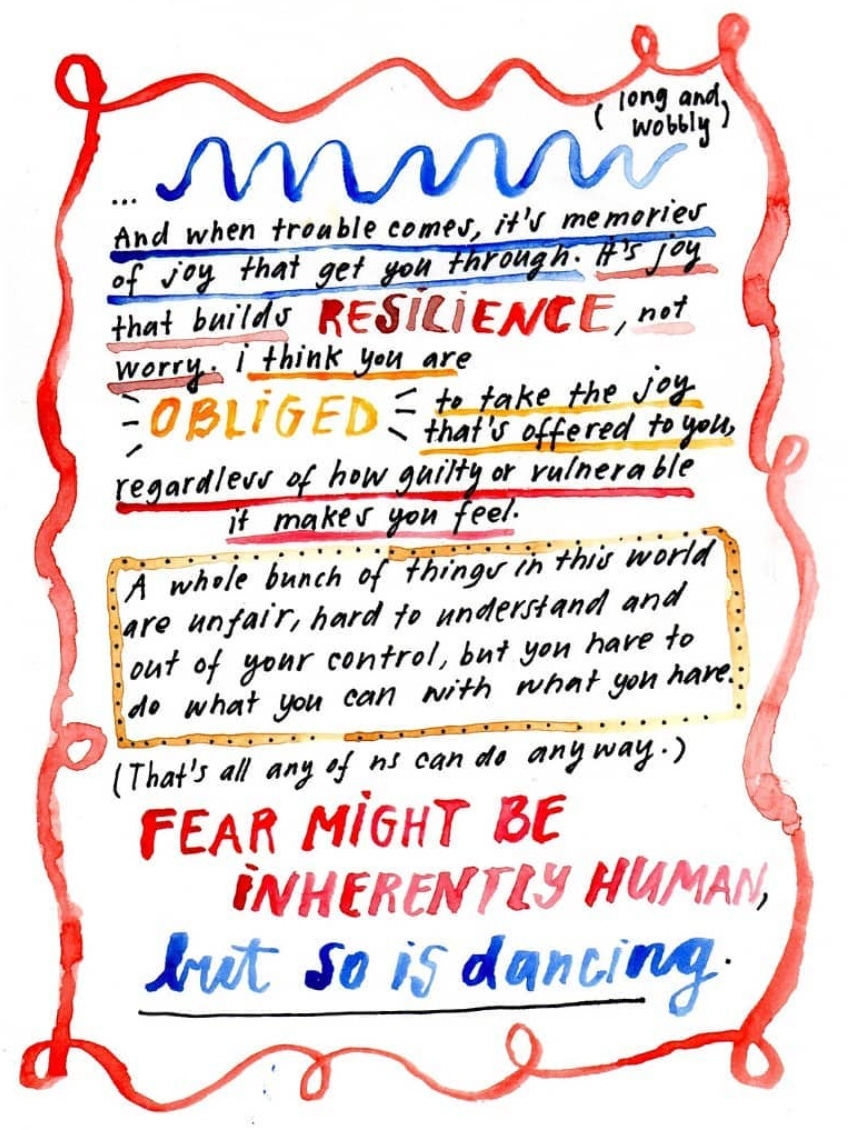 ( long and
wobbly )
...
And when trouble comes, it's memories
of joy that get you through. It's joy
that builds RESILIENCE, not
worry. i think you are
OBLIGED to take the joy
that's offered to you,
regardless of how guilty or vulnerable
it makes you feel.
A whole bunch of things in this world
are unfair, hard to understand and
out of your control, but you have to
do what you can with what you have.
(That's all any of us can do anyway.)
FEAR MIGHT BE
INHERENTLY HUMAN,
but so is dancing.